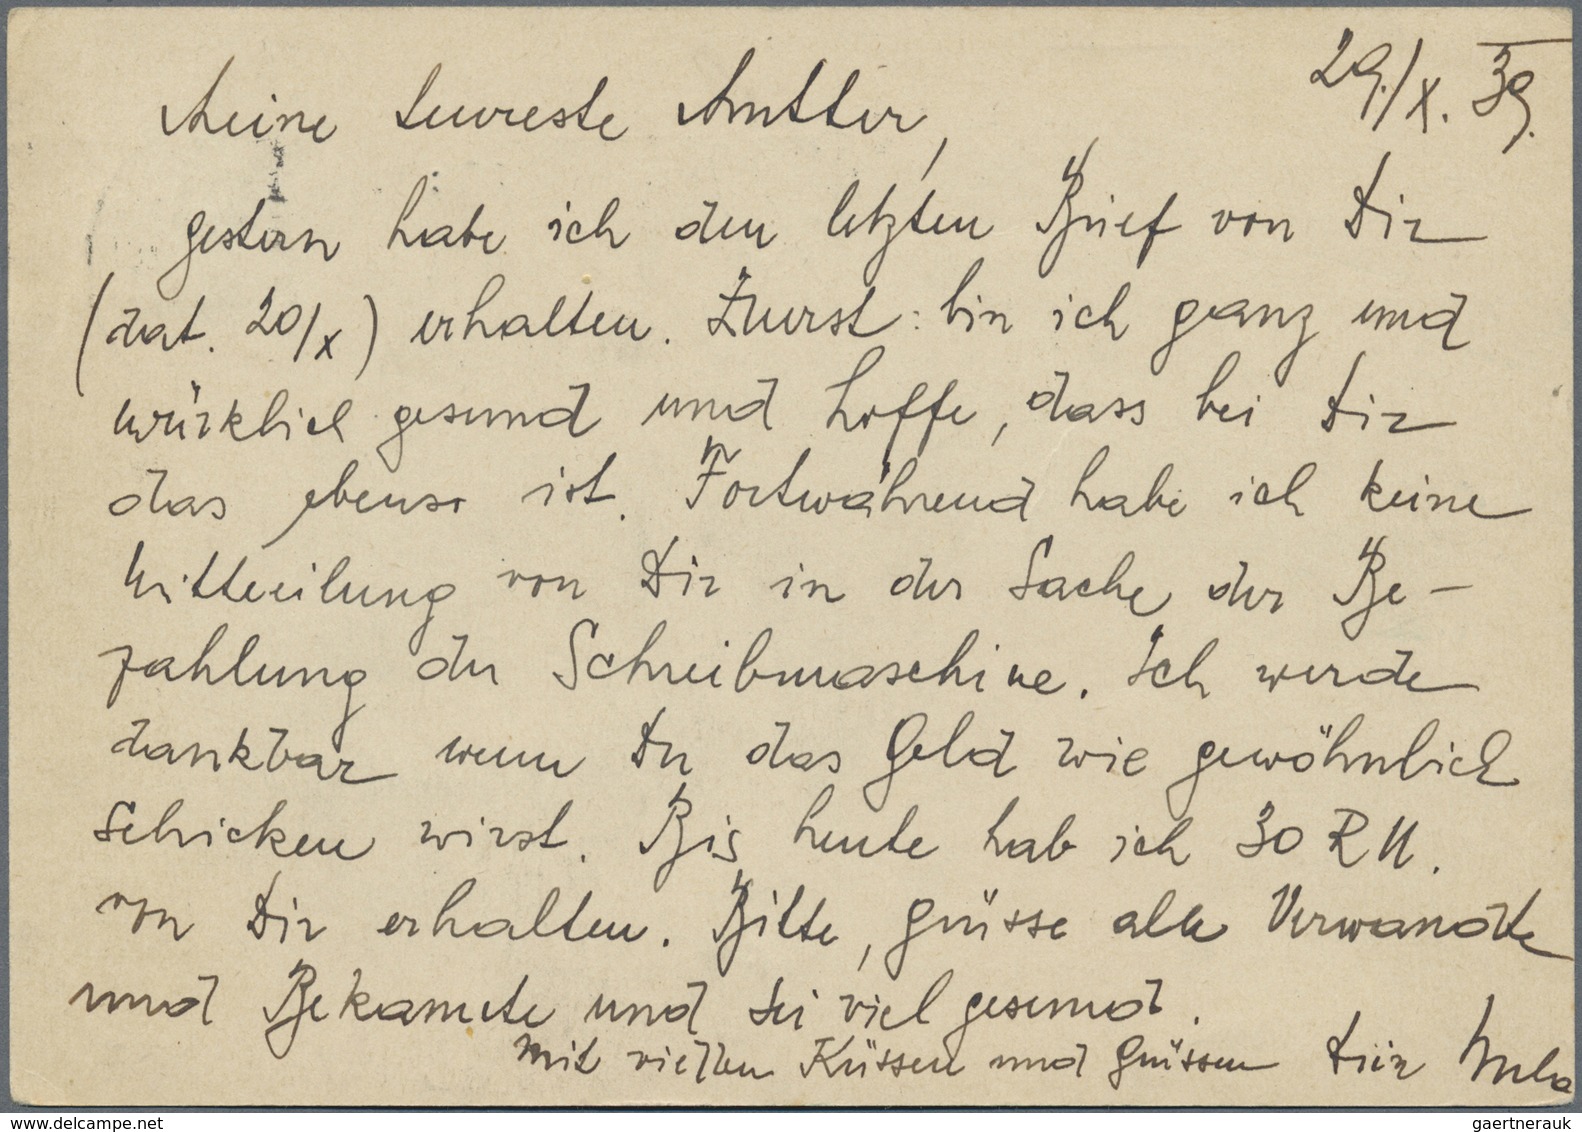 29./X. 39.
Meine teureste Mutter,
gestern habe ich den letzten Brief von Dir
(dat. 20/X) erhalten. Zuerst: bin ich ganz und
würklich gesund und hoffe, dass bei Dir
das ebenso ist. Fortwährend habe ich keine
Mitteilung von Dir in der Sache der Be-
zahlung der Schreibmaschine. Ich werde
dankbar wenn Du das Geld wie gewöhnlich
schicken wirst. Bis heute hab ich 30 RM.
von Dir erhalten. Bitte, grüsse alle Verwandte
und Bekannte und sei viel gesund.
Mit viellen Küssen und Grüssen Dein
www.delcampe.net
gaertnerauk